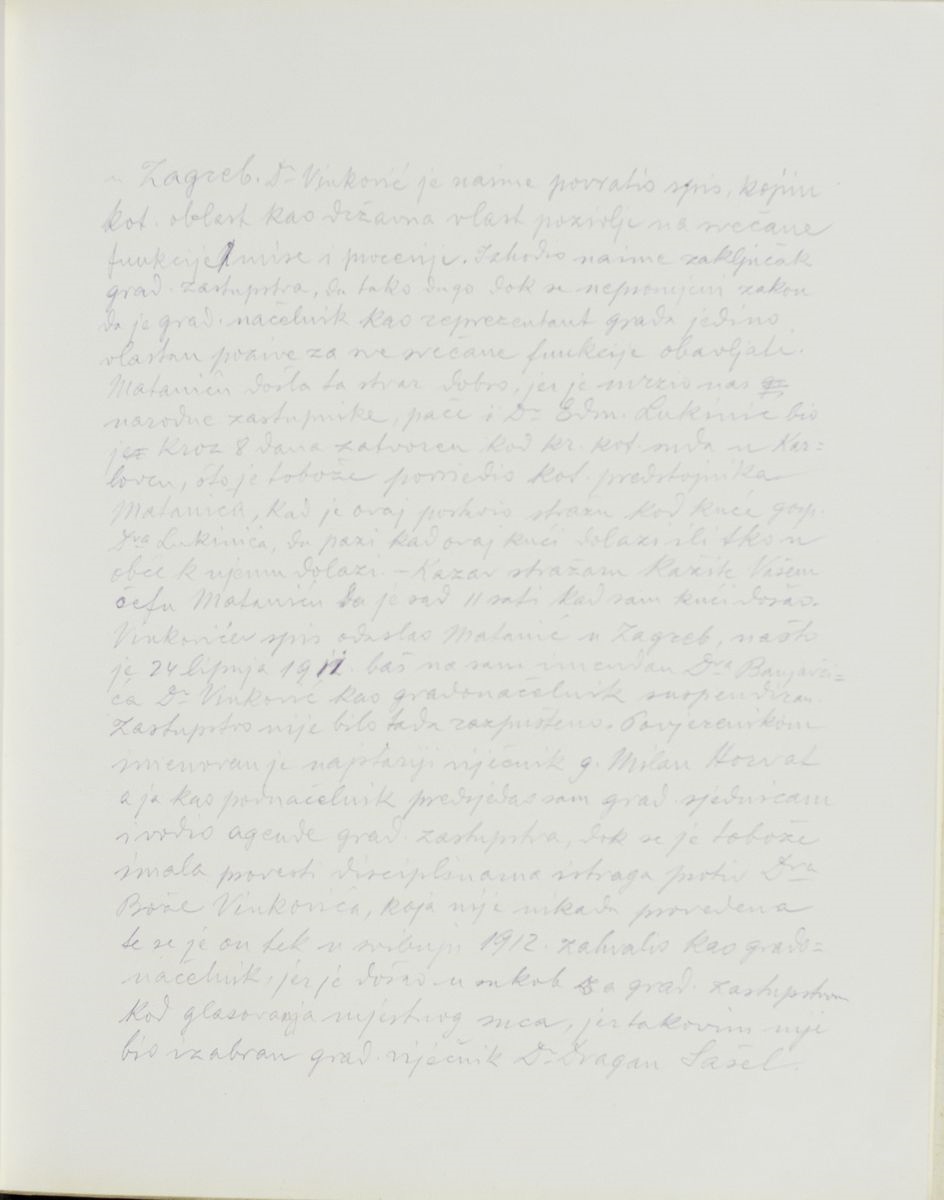 u Zagreb. Dr Vinković je naime povratio spis, kojim
kot. oblast kao državna vlast pozivlje na svečane
funkcije mise i procesije. Ishodio naime zaključak
grad. zastupstva, da tako dugo dok se nepromijeni zakon
da je grad. načelnik kao reprezentant grada jedino
vlastan pozive za sve svečane funkcije obavljati.
Mataniću došla ta stvar dobro, jer je mrzio nas
narodne zastupnike, pače i Dr Edm. Lukinić bio
je kroz 8 dana zatvoren kod kr. kot. suda u Kar=
lovcu, što je tobože povriedio kot. predstojnika
Matanića, kad je ovaj postavio stražu kod kuće gosp.
Dra Lukinića, da pazi kad ovaj kući dolazi ili tko u
obće k njemu dolazi. – Kazav stražaru Kažite Vašem
šefu Mataniću da je sad 11 sati kad sam kući došao.
Vinkovićev spis odaslao Matanić u Zagreb, našto
je 24 lipnja 1911. baš na sam imendan Dra Banjavči=
ća Dr Vinković kao gradonačelnik suspendiran.
Zastupstvo nije bilo tada razpušteno. Povjerenikom
imenovan je najstariji viječnik g. Milan Horvat
a ja kao podnačelnik predsjedao sam grad. sjednicam
i vodio agende grad. zastupstva, dok se je tobože
imala povesti disciplinarna istraga protiv Dra
Bože Vinkovića, koja nije nikada provedena
te se je on tek u svibnju 1912. zahvalio kao grado=
načelnik, jer je došao u sukob sa grad. zastupstvom
kod glasovanja mjestnog suca, jer takovim nije
bio izabran grad. viječnik Dr Dragan Šašel.